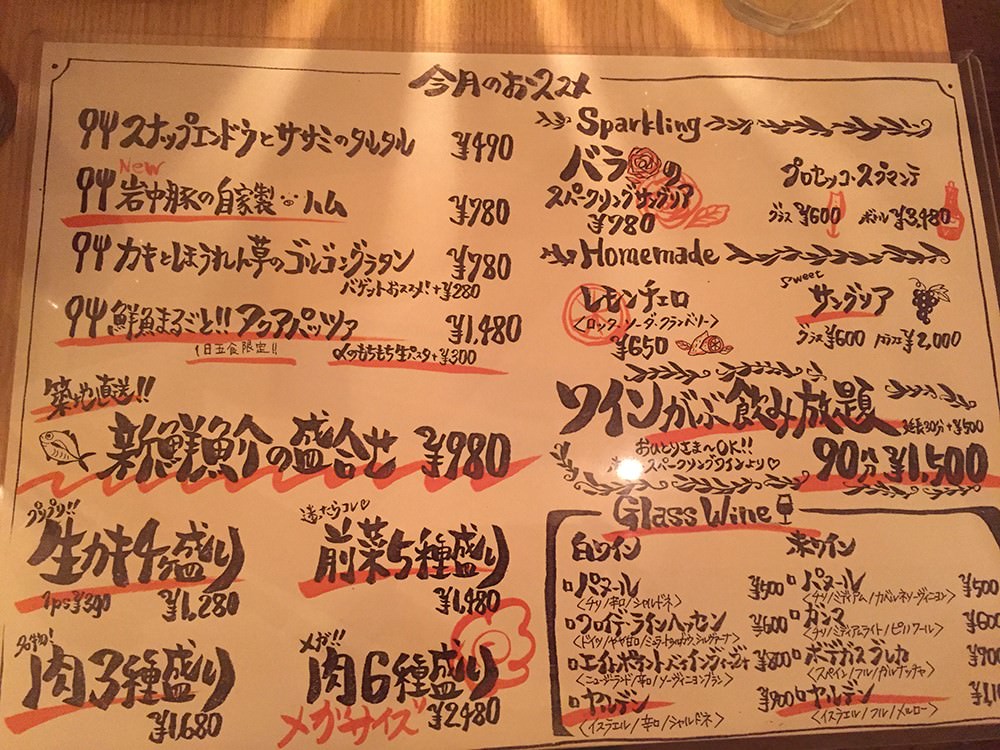 今月のおススメ
スナップエンドウとササミのタルタル ¥490
New
岩中豚の自家製ハム ¥780
カキとほうれん草のゴルゴンゾーラグラタン ¥780
バゲットおススメ!+¥280
鮮魚まるごと!!アクアパッツァ ¥1,480
1日五食限定!!
〆のもちもち生パスタ+¥300
築地直送!!
新鮮魚介の盛合せ ¥980
プリプリ!!
生カキ4ヶ盛り
1ps ¥390 ¥1,280
迷ったらコレ♡
前菜5種盛り
¥1,480
名物!
肉3種盛り
¥1,680
メガ!!
肉6種盛り
メガサイズ ¥2,480
Sparkling
バラの
スパークリングサングリア
¥780
プロセッコ・スプマンテ
グラス¥600 ボトル¥3,480
Homemade
レモンチェロ
<ロック・ソーダ・クランベリー>
¥650
sweet
サングリア
グラス¥600 ¥2,000
ワインがぶ飲み放題
延長30分+¥500
おひとりさま〜OK!!
スパークリングワインより♡
90分¥1,500
Glass Wine
白ワイン
パヌール ¥500
<チリ/辛口/シャルドネ>
クロイデ・ラインヘッセン ¥600
<ドイツ/やや甘口/ミュラートゥルガウ,シルヴァーナ>
エイトポケット ¥800
<ニュージーランド/辛口/ソーヴィニヨンブラン>
ヤルデン ¥900
<イスラエル/辛口/シャルドネ>
赤ワイン
パヌール ¥500
<チリ/ミディアム/カベルネソーヴィニヨン>
ガンマ ¥600
<チリ/ミディアムライト/ピノノワール>
ボデガス ¥900
<スペイン/フル/ガルナッチャ>
ヤルデン
<イスラエル/フル/メルロー>